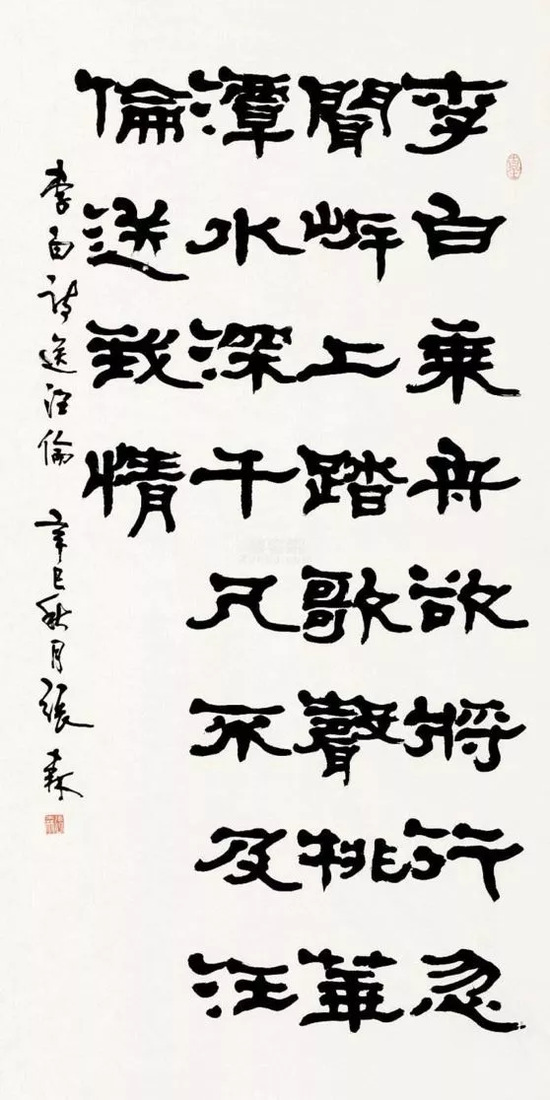 李白乘舟欲將行忽
聞岸上踏歌聲桃華
潭水深千尺不及汪
倫送我情
李白詩送汪倫 辛巳秋月張森